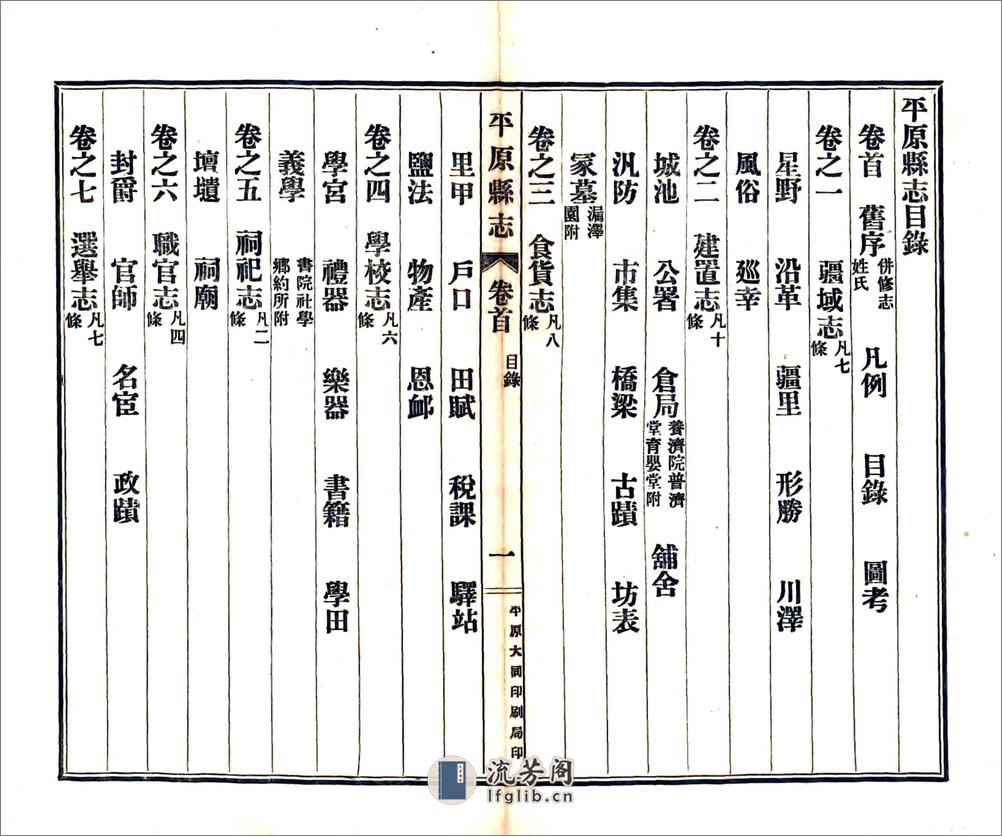 平原縣志目錄
卷首 舊序 併修志姓氏 凡例 目錄 圖考
卷之一 疆域志 凡七條
星野 沿革 疆里 形勝 川澤
風俗 廵幸
卷之二 建置志 凡十條
城池 公署 倉局 養濟院普濟堂育嬰堂附 舖舍
汛防 市集 橋梁 古蹟 坊表
冢墓 漏澤園附
卷之三 食貨志 凡八條
平原縣志 卷首 目錄 一 平原大同印刷局印
里甲 戶口 田賦 稅課 驛站
鹽法 物產 恩卹
卷之四 學校志 凡六條
學宮 禮器 樂器 書籍 學田
義學 書院社學鄉約所附
卷之五 祠祀志 凡二條
壇壝 祠廟
卷之六 職官志 凡四條
封爵 官師 名宦 政蹟
卷之七 選舉志 凡七條
流芳阁
lfglib.cn